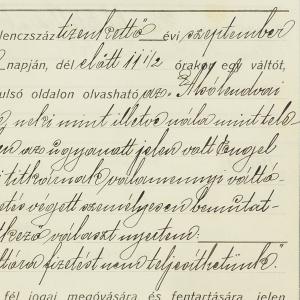 lenczszáz tizenkettő évi szeptember
napján, dél előtt 11 1/2 órakor egy váltót,
ulsó oldalon olvasható az "Alsólendvai
neki mint illetve nála mint tele
az ugyanott jelen volt Engel
titkárnak valamennyi váltá-
végett személyesen bemutat-
választ nyertem:
fizetést nem teljesíthetünk."
fél jogai megóvására és fentartására, jelen